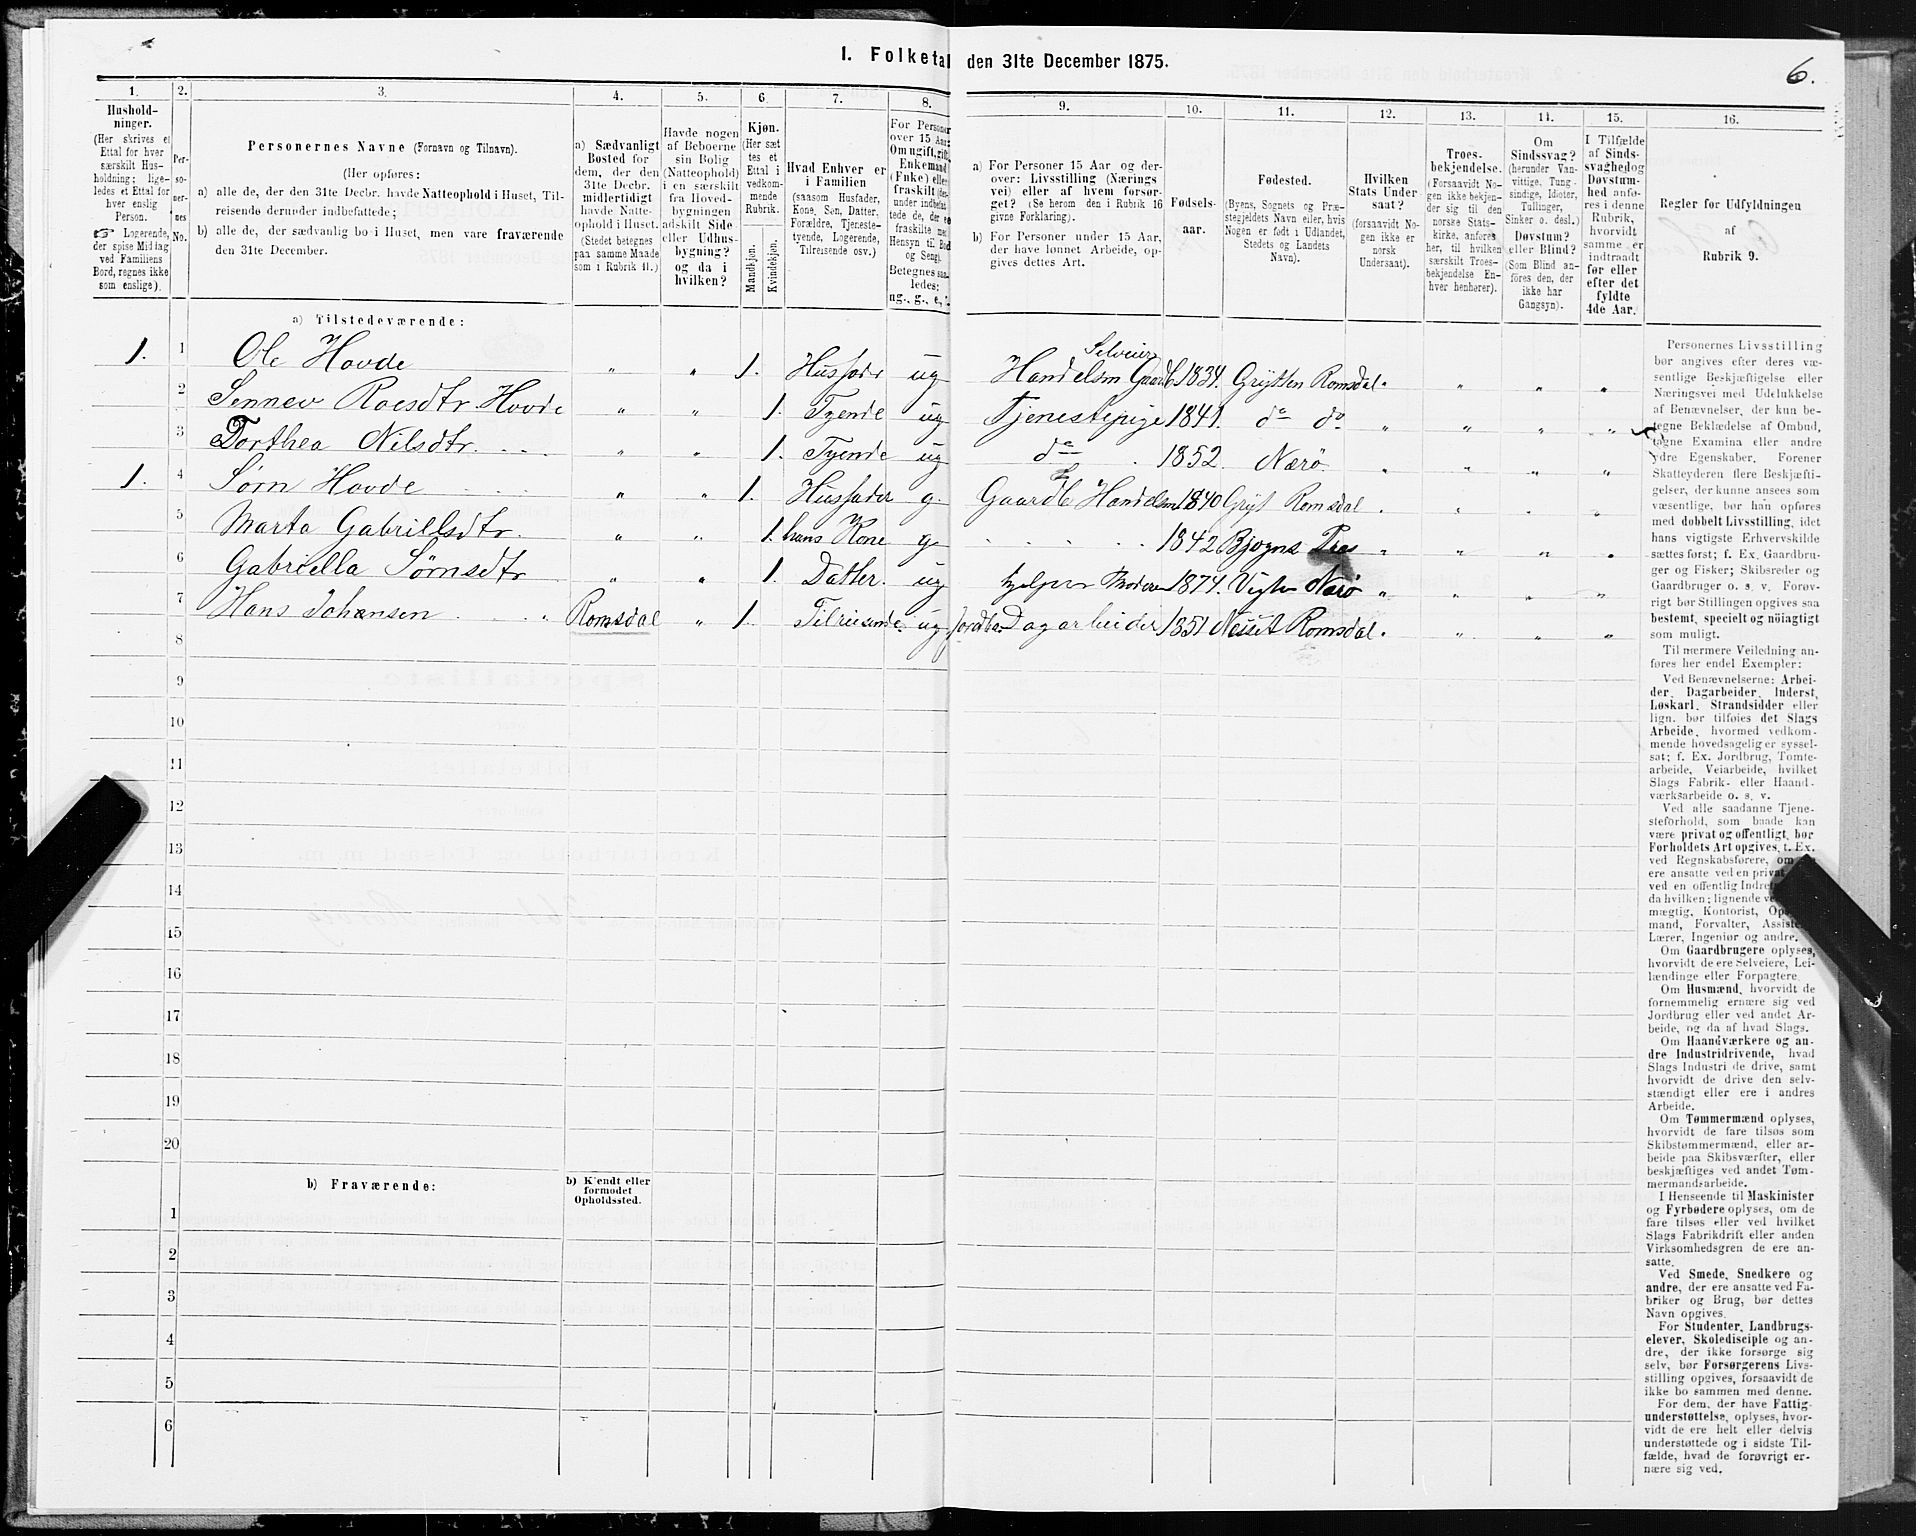 I. Folketal den 31te December 1875.
6.
1. 2. 3. 4. 5. 6. 7. 8. 9. 10. 11. 12. 13. 14. 15. 16.
Hushold-
ninger.
(Her skrives et
Ettal for hver
særskilt Hus-
holdning; lige-
ledes et Ettal for
hver enslig
Person.
☞ Logerende,
der spise Middag
ved Familiens
Bord, regnes ikke
som enslige).
Per-
so-
ner-
nes
No.
Personernes Navne (Fornavn og Tilnavn).
(Her opføres:
a) alle de, der den 31te Decbr. havde Natteophold i Huset, Til-
reisende derunder indbefattede;
b) alle de, der sædvanlig bo i Huset, men vare fraværende
den 31te December.
a) Sædvanligt
Bosted for
dem, der den
31te Decbr.
midlertidigt
havde Natte-
ophold i Huset.
(Stedet betegnes
paa samme Maade
som i Rubrik 11.)
Havde nogen
af Beboerne
sin Bolig
(Natteophold)
i en særskilt
fra Hoved-
bygningen
adskilt Side-
eller Udhus-
bygning?
og da i
hvilken?
Kjøn.
(Her sæt-
tes et
Ettal i
vedkom-
mende
Rubrik.
Mandkjøn.
Kvindekjøn.
Hvad Enhver er
i Familien
(saasom Husfader,
Kone, Søn, Datter,
Forældre, Tjeneste-
tyende, Logerende,
Tilreisende osv.)
For Personer
over 15 Aar:
Om ugift, gift,
Enkemand
(Enke) eller
fraskilt (der-
under indbefat-
tede de, der ere
fraskilte med
Hensyn til Bord
og Seng).
Betegnes saa-
ledes:
ug., g., e.,
a) For Personer 15 Aar og der-
over: Livsstilling (Nærings-
vei) eller af hvem forsør-
get? (Se herom den i Rubrik 16
givne Forklaring).
b) For Personer under 15 Aar,
der have lønnet Arbeide, op-
gives dettes Art.
Fødsels-
aar.
Fødested.
(Byens, Sognets og Præ-
stegjeldets Navn eller, hvis
Nogen er født i Udlandet,
Stedets og Landets
Navn).
Hvilken
Stats Under-
saat?
(forsaavidt No-
gen ikke er
norsk
Undersaat).
Troes-
bekjendelse.
(Forsaavidt No-
gen ikke bekjen-
der sig til den
norske Stats-
kirke, anføres
her, til hvilken
særskilt Troes-
bekjendelse En-
hver henhører).
Om
Sindssvag?
(herunder Van-
vittige, Tung-
sindige, Idioter,
Tullinger,
Sinker o. desl.)
Døvstum?
eller Blind?
(Som Blind an-
føres den, der
ikke har
Gangsyn).
I Tilfælde
af Sinds-
svaghed og
Døvstum-
hed anfø-
res i denne
Rubrik,
hvorvidt
samme er
indtraadt
før eller
efter det
fyldte
4de Aar.
Regler for Udfyldningen
af
Rubrik 9.
a) Tilstedeværende:
1. 1 Ole Hovde " " 1. Husfader ug Handelsm Selveier Gaardb 1834. Grytten Romsdal " " " "
2 Sennev Roesdtr Hovde " " 1. Tyende ug Tjenestepige 1841. do do " " " "
3 Dorthea Nilsdtr. " " 1. Tyende ug do 1852. Nærø " " " "
1. 4 Sørn Hovde " " 1. Husfader g. Gaardb S Handelsm 1840 Gryt Romsdal " " " "
5 Marta Gabrillsdtr. " " 1. hans Kone g. 1842 Bjogns " " " "
6 Gabriella Sørnsdtr " " 1. Datter. ug hjelper Moderen 1874. Nærø " " " "
7 Hans Johansen " Romsdal " 1. Tilreisende ug. Jordbr. Dagarbeider 1851 Nesset Romsdal " " " "
8
9
10
11
12
13
14
15
16
17
18
19
20
b) Fraværende:
b) Kjendt eller
formodet
Opholdssted.
1
2
3
4
5
6
Personernes Livsstilling
bør angives efter deres væ-
sentlige Beskjæftigelse eller
Næringsvei med Udelukkelse
af Benævnelser, der kun be-
tegne Beklædelse af Ombud,
tagne Examina eller andre
ydre Egenskaber. Forener
Skatteyderen flere Beskjæfti-
gelser, der kunne ansees som
væsentlige, bør han opføres
med dobbelt Livsstilling, idet
hans vigtigste Erhvervskilde
sættes først; f. Ex. Gaardbru-
ger og Fisker; Skibsreder og
Gaardbruger o. s. v. Forøv-
rigt bør Stillingen opgives saa
bestemt, specielt og nöiagtigt
som muligt.
Til nærmere Veiledning an-
føres her endel Exempler:
Ved Benævnelserne: Arbei-
der, Dagarbeider, Inderst,
Løskarl, Strandsidder eller
lign. bør tilføies det Slags
Arbeide, hvormed vedkom-
mende hovedsagelig er syssel-
sat; f. Ex. Jordbrug, Tomte-
arbeide, Veiarbeide, hvilket
Slags Fabrik- eller Haand-
værksarbeide o. s. v.
Ved alle saadanne Tjene-
steforhold, som baade kan
være privat og offentligt, bør
Forholdets Art opgives, t. Ex.
ved Regnskabsførere, om
ere ansatte ved en privat
ved en offentlig
da hvilken; lignende ved
mægtig, Kontorist,
mand, Forvalter,
Lærer, Ingeniør og andre.
Om Gaardbrugere oplyses,
hvorvidt de ere Selveiere, Lei-
lændinge eller Forpagtere.
Om Husmænd, hvorvidt de
fornemmelig ernære sig ved
Jordbrug eller ved andet Ar-
beide, og da af hvad Slags.
Om Haandværkere og an-
dre Industridrivende, hvad
Slags Industri de drive, samt
hvorvidt de drive den selv-
stændigt eller ere i andres
Arbeide.
Om Tømmermænd oplyses,
hvorvidt de fare tilsøs som
Skibstømmermænd, eller ar-
beide paa Skibsværfter, eller
beskjæftiges ved andet Tøm-
mermandsarbeide.
I Henseende til Maskinister
og Fyrbødere oplyses, om de
fare tilsøs eller ved hvilket
Slags Fabrikdrift eller anden
Virksomhedsgren de ere an-
satte.
Ved Smede, Snedkere og
andre, der ere ansatte ved Fa-
briker og Brug, bør dettes
Navn opgives.
For Studenter, Landbrugs-
elever, Skoledisciple og an-
dre, der ikke forsørge sig
selv, bør Forsørgerens Livs-
stilling opgives, forsaavidt de
ikke bo sammen med denne.
For dem, der have Fattig-
understøttelse, oplyses, hvor-
vidt de ere helt eller delvis
understøttede og i sidste Til-
fælde, hvad de forøvrigt er-
nære sig ved.